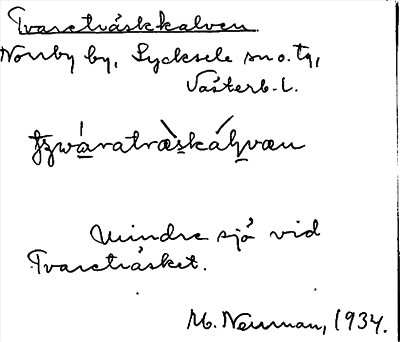 Tvareträskkalven
Norrby by, Lycksele sn o. tg,
Västerb. l.
Mindre sjö vid
Tvareträsket.
M. Neuman, 1934.